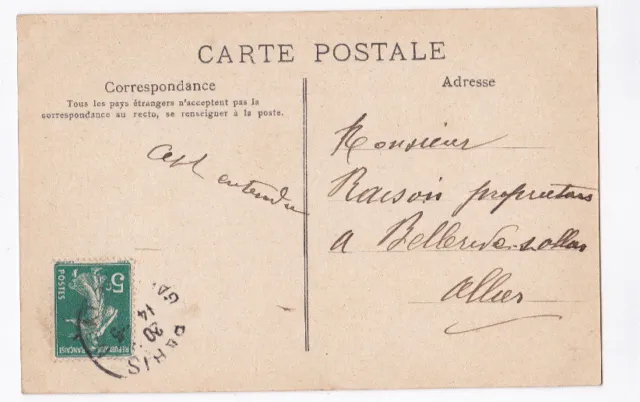 CARTE POSTALE
Correspondance
Tous les pays étrangers n'acceptent pas la
correspondance au recto, se renseigner à la poste.
C'est entendu
Adresse
Monsieur
Raison propriétaire
a Bellerive s. allier
Allier
5c
POSTES
REPUBLIQUE FRANÇAISE
PARIS
GA
14
30